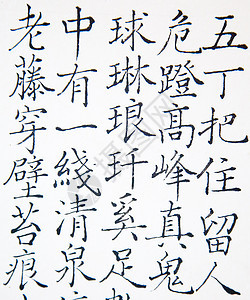 五丁把住留人
危蹬高峰真鬼
球琳琅玕奚足
中有一綫清泉
老藤穿壁苔痕